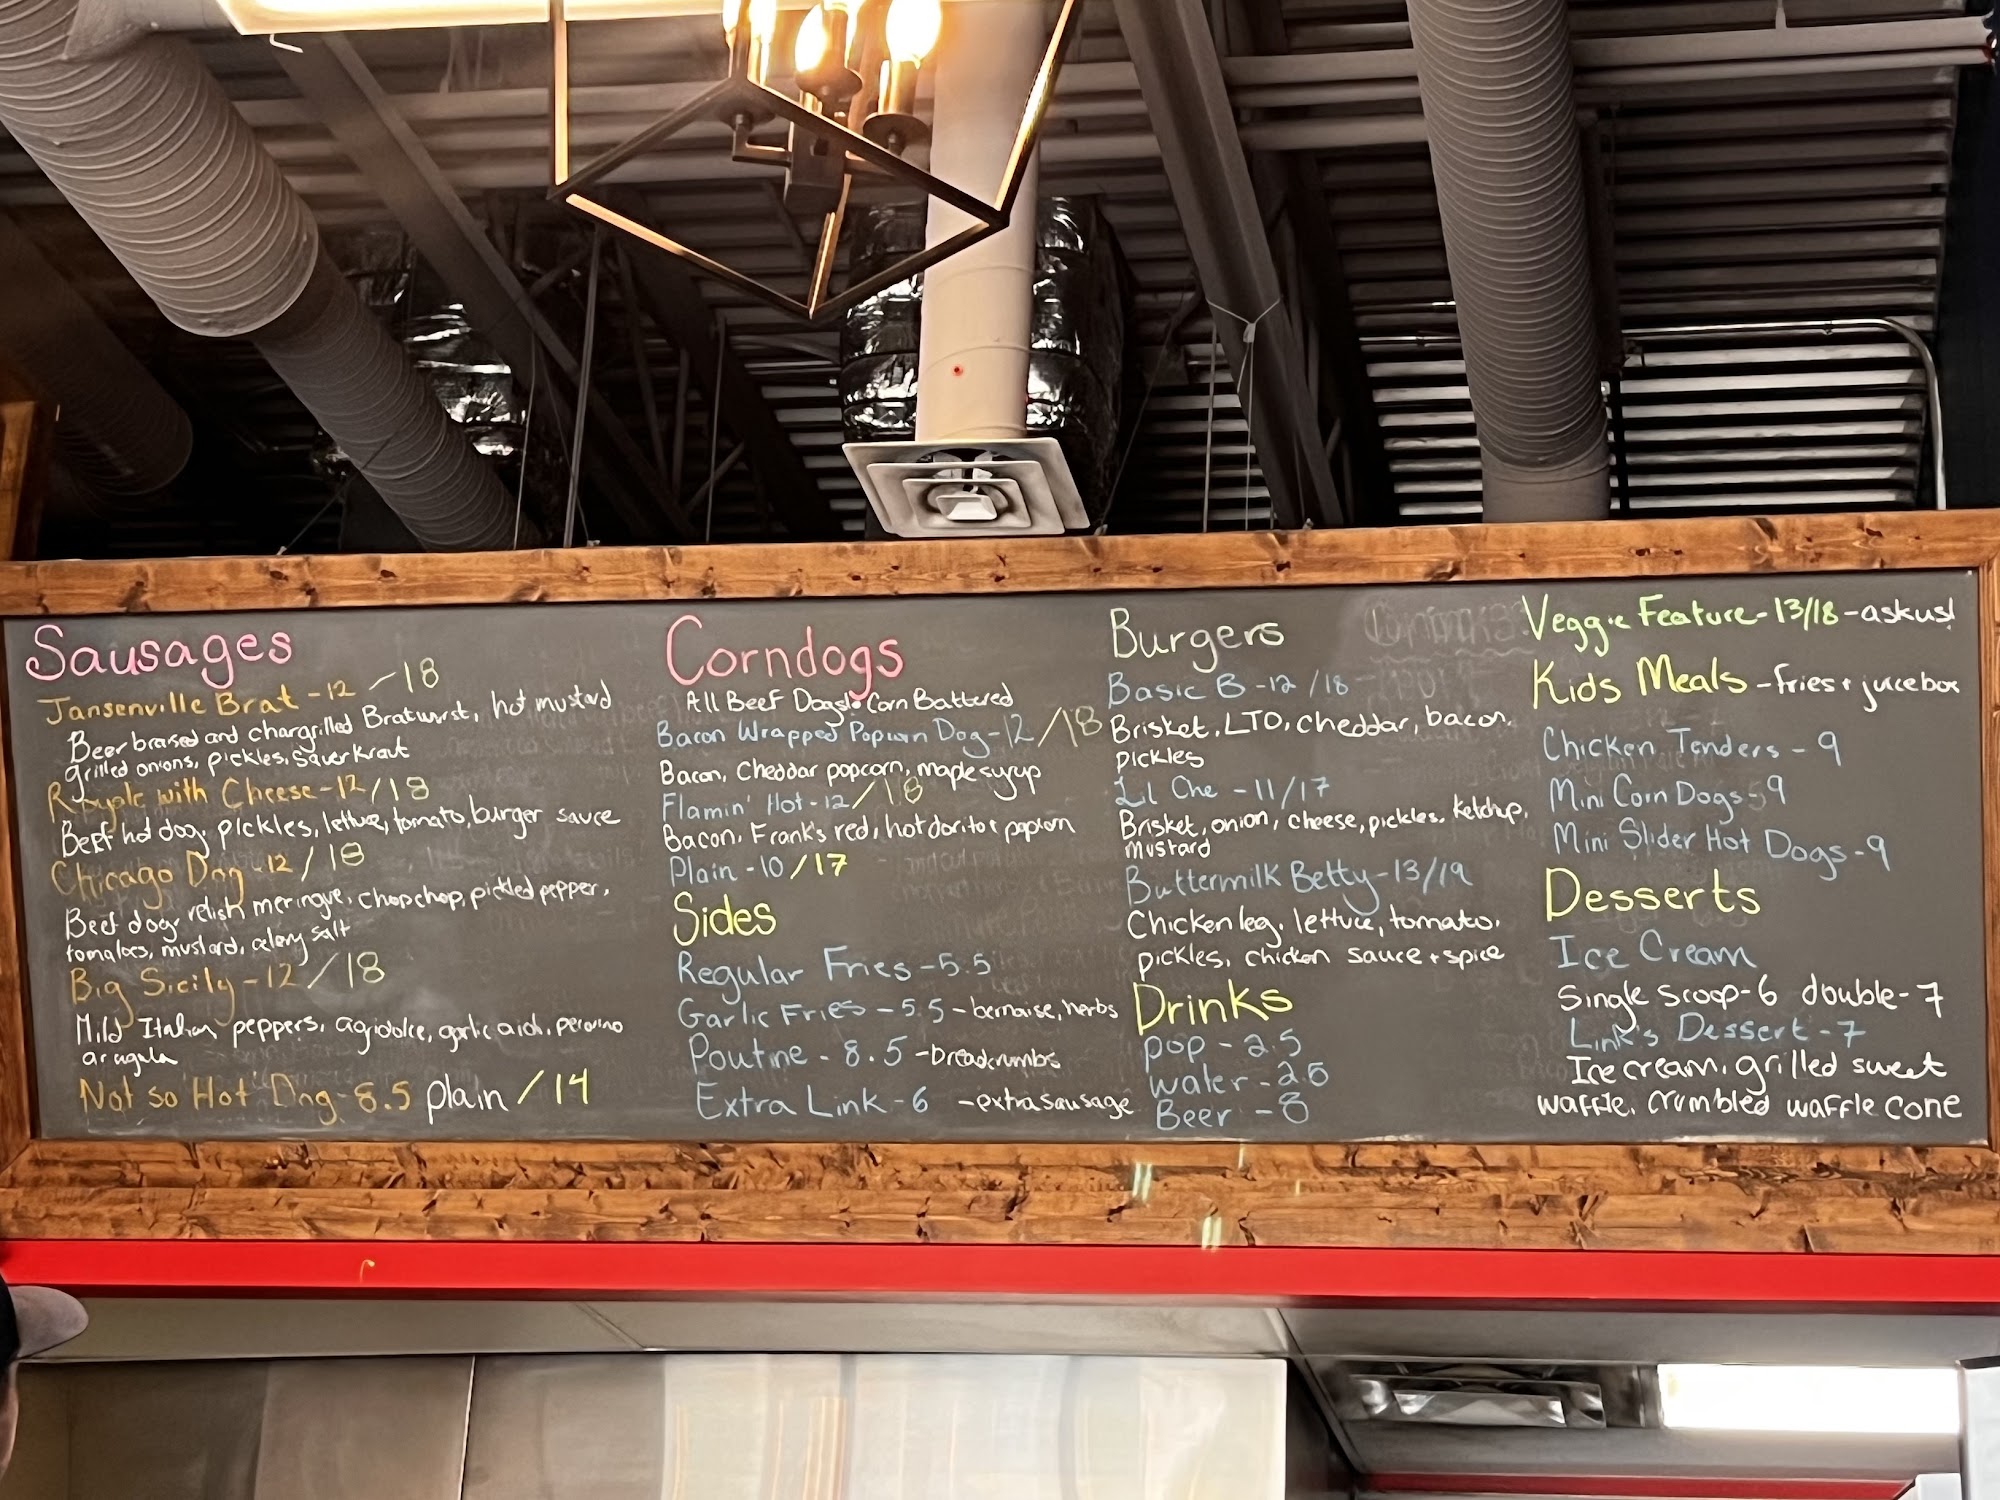 Sausages
Jansenville Brat - 12 / 18
Beer braised and chargrilled Bratwurst, hot mustard
grilled onions, pickles, Sauerkraut
Royale with Cheese - 12 / 18
Beef hot dog, pickles, lettuce, tomato, burger sauce
Chicago Dog - 12 / 18
Beef dog, relish meringue, chopchop, pickled pepper,
tomatoes, mustard, celery salt
Big Sicily - 12 / 18
Mild Italian peppers, agrodolce, garlic aioli, pecorino
arugula
Not so Hot Dog - 8.5 plain / 14
Corndogs
All Beef Dogs Corn Battered
Bacon Wrapped Popcorn Dog - 12 / 18
Bacon, Cheddar popcorn, maple syrup
Flamin' Hot - 12 / 18
Bacon, Frank's red, hot dorito + popcorn
Plain - 10 / 17
Sides
Regular Fries - 5.5
Garlic Fries - 5.5 - bernaise, herbs
Poutine - 8.5 - breadcrumbs
Extra Link - 6 - extra sausage
Burgers
Basic B - 12 / 18
Brisket, LTO, cheddar, bacon,
pickles
Lil One - 11/17
Brisket, onion, cheese, pickles, ketchup,
mustard
Buttermilk Betty - 13/19
Chicken leg, lettuce, tomato,
pickles, chicken sauce + spice
Drinks
pop - 2.5
water - 2.5
Beer - 8
Veggie Feature - 13/18 - ask us!
Kids Meals - fries + juicebox
Chicken Tenders - 9
Mini Corn Dogs 9
Mini Slider Hot Dogs - 9
Desserts
Ice Cream
Single scoop - 6 double - 7
Link's Dessert - 7
Ice cream, grilled sweet
waffle, crumbled waffle cone